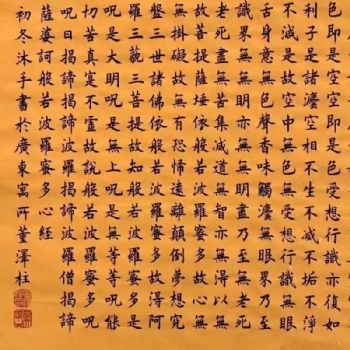 色即是空空即是色受想行識亦復如
利子是諸法空相不生不滅不垢不淨
不減是故空中無色無受想行識無眼
舌身意無色聲香味觸法無眼界乃至
識界無無明亦無無明盡乃至無老死
老死盡無苦集滅道無智亦無得以無
故菩提薩埵依般若波羅蜜多故心無
無罣礙故無有恐怖遠離顛倒夢想究
槃三世諸佛依般若波羅蜜多故得阿
羅三藐三菩提故知般若波羅蜜多是
呪是大明呪是無上呪是無等等呪能
切苦真實不虛故說般若波羅蜜多呪
呪曰揭諦揭諦波羅揭諦波羅僧揭諦
薩婆訶般若波羅蜜多心經
初冬沐手書於廣東寓所董澤柱